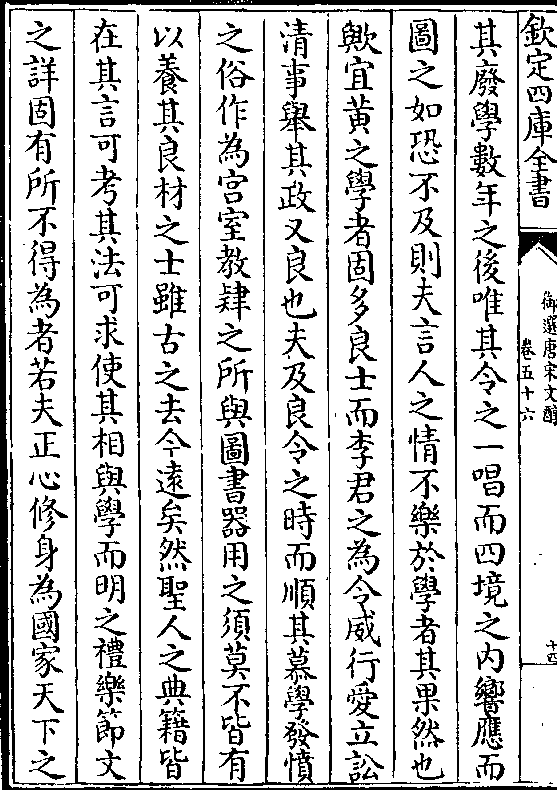 欽定四庫全書
御選唐宋文醇
卷五十六
十四
其廢學數年之後唯其令之一唱而四境之内響應而
圖之如恐不及則夫言人之情不樂於學者其果然也
歟宜黄之學者固多良士而李君之為令威行愛立訟
清事舉其政又良也夫及良令之時而順其慕學發憤
之俗作為宫室教肄之所與圖書器用之須莫不皆有
以養其良材之士雖古之去今遠矣然聖人之典籍皆
在其言可考其法可求使其相與學而明之禮樂節文
之詳固有所不得為者若夫正心修身為國家天下之